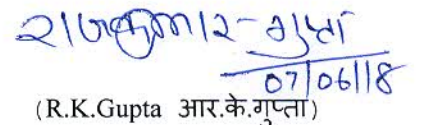 राजकुमार गुप्ता
07/06/18
(R.K.Gupta आर.के.गुप्ता)